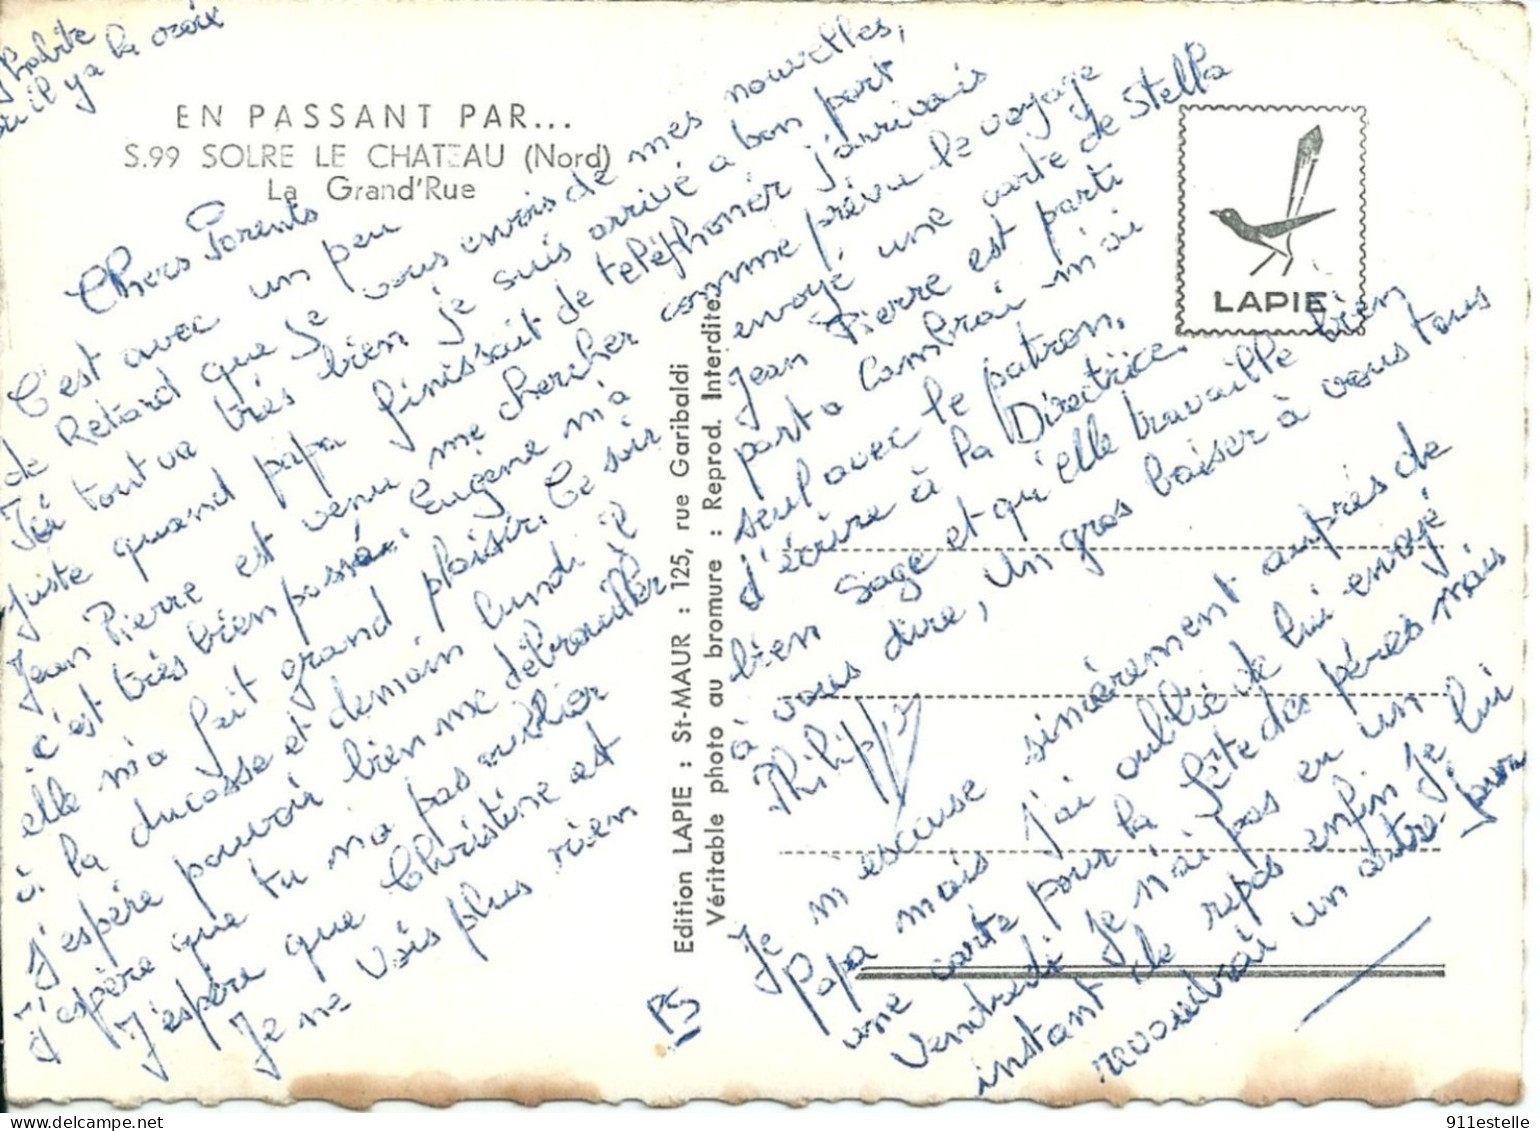 J'habite
où il y a la croix
EN PASSANT PAR...
S.99 SOLRE LE CHATEAU (Nord)
La Grand'Rue
Chers Parents
C'est avec un peu
de Retard que Je vous envois de mes nouvelles,
Ici tout va très bien je suis arrivé a bon port
Juste quand papa finissait de teléphoner j'arrivais
Jean Pierre est venu me chercher comme prévu le voyage
c'est très bien passé. Eugène m'a
elle m'a fait grand plaisir. Ce soir
à la ducasse et demain lundi
J'espère pouvoir bien me débrouiller
J'espère que tu m'a pas oublier
J'espère que Christine est
Je ne vois plus rien
envoyé une carte de Stella
Jean Pierre est parti
part a Cambrai m'oi
seul avec le patron.
d'écrire à la Directrice.
bien sage et qu'elle travaille bien
à vous dire, Un gros baiser à vous tous
Philippe
PS
Je m'escuse sincèrement auprès de
Papa mais j'ai oublié de lui envoyé
une carte pour la fête des pères mais
Vendredi Je n'ai pas eu un
instant de repos enfin Je lui
revoudrai un autre jour
Edition LAPIE : St-MAUR : 125, rue Garibaldi
Véritable photo au bromure : Reprod. Interdite
LAPIE
911estelle